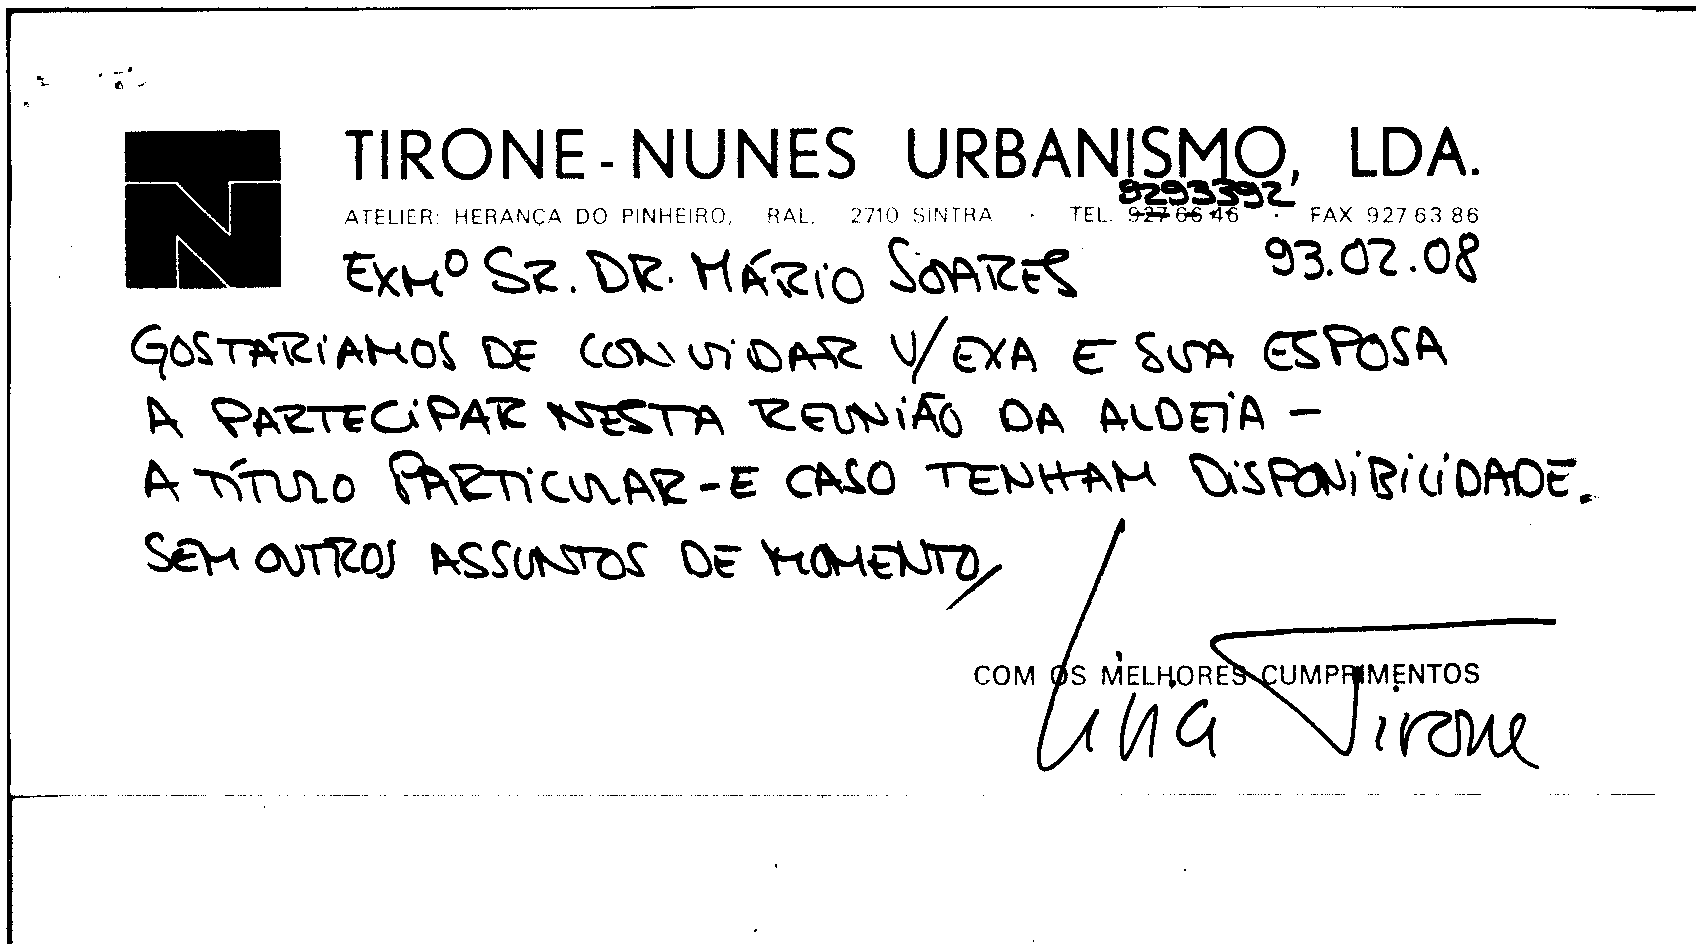 TIRONE-NUNES URBANISMO, LDA.
9293392
ATELIER: HERANÇA DO PINHEIRO, RAL. 2710 SINTRA · TEL. 927 66 46 · FAX 927 63 86
EXMº SR. DR. MÁRIO SOARES 93.02.08
GOSTARIAMOS DE CONVIDAR V/EXA E SUA ESPOSA
A PARTECIPAR NESTA REUNIÃO DA ALDEIA –
A TÍTULO PARTICULAR – E CASO TENHAM DISPONIBILIDADE.
SEM OUTROS ASSUNTOS DE MOMENTO,
COM OS MELHORES CUMPRIMENTOS
Livia Tirone